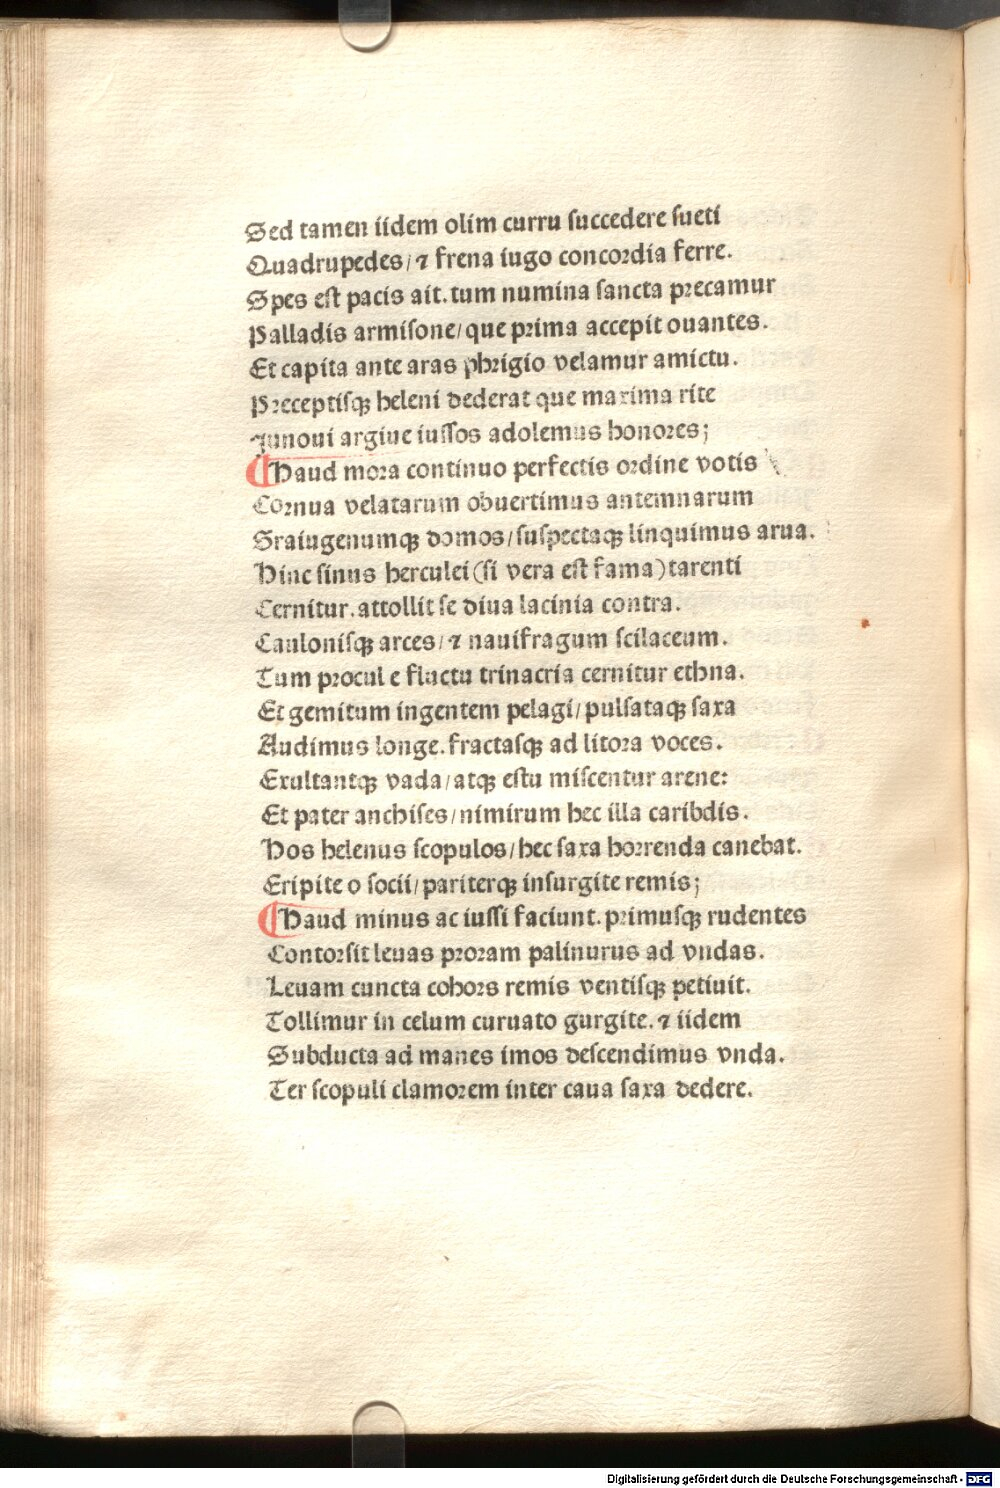 Sed tamen iidem olim curru succedere sueti
Quadrupedes/⁊ frena iugo concordia ferre.
Spes est pacis ait. tum numina sancta precamur
Palladis armisone/que prima accepit ouantes.
Et capita ante aras phrigio velamur amictu.
Preceptisqꝫ heleni dederat que maxima rite
Junoni argiue iussos adolemus honores;
¶Haud mora continuo perfectis ordine votis
Cornua velatarum obuertimus antemnarum
Graiugenumqꝫ domos/suspectaqꝫ linquimus arua.
Hinc sinus herculei(si vera est fama)tarenti
Cernitur. attollit se diua lacinia contra.
Caulonisqꝫ arces/⁊ nauifragum scilaceum.
Tum procul e fluctu trinacria cernitur ethna.
Et gemitum ingentem pelagi/pulsataqꝫ saxa
Audimus longe. fractasqꝫ ad litora voces.
Exultantqꝫ vada/atqꝫ estu miscentur arene:
Et pater anchises/nimirum hec illa caribdis.
Hos helenus scopulos/hec saxa horrenda canebat.
Eripite o socii/pariterqꝫ insurgite remis;
¶Haud minus ac iussi faciunt. primusqꝫ rudentes
Contorsit leuas proram palinurus ad vndas.
Leuam cuncta cohors remis ventisqꝫ petiuit.
Tollimur in celum curuato gurgite. ⁊ iidem
Subducta ad manes imos descendimus vnda.
Ter scopuli clamorem inter caua saxa dedere.
Digitalisierung gefördert durch die Deutsche Forschungsgemeinschaft - DFG